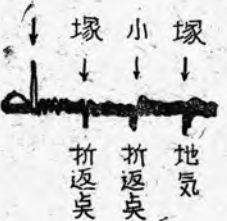 塚 小 塚
折返点 折返点 地気